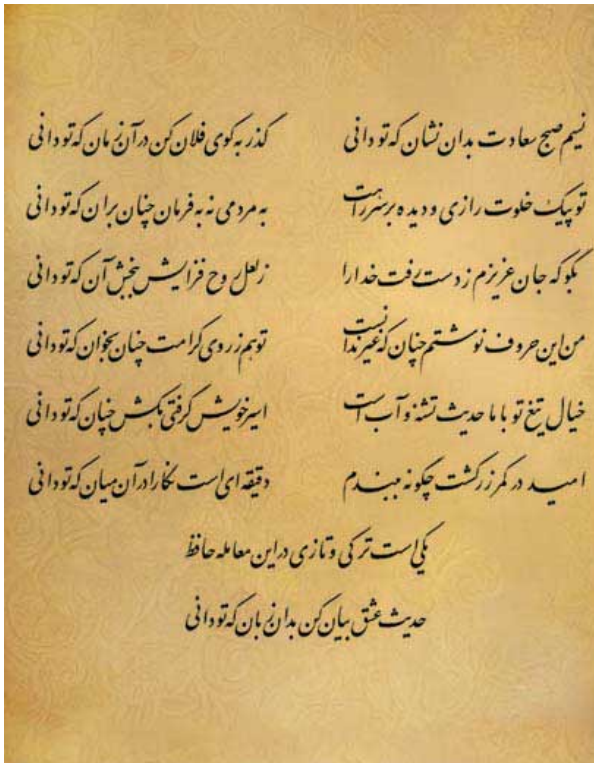 نسیم صبح سعادت بدان نشان که تو دانی گذر به کوی فلان کن در آن زمان که تو دانی
تو پیک خلوت رازی و دیده بر سر راهت به مردمی نه به فرمان چنان بران که تو دانی
بگو که جان عزیزم ز دست رفت خدا را ز لعل روح فزایش ببخش آن که تو دانی
من این حروف نوشتم چنان که غیر ندانست تو هم ز روی کرامت چنان بخوان که تو دانی
خیال تیغ تو با ما حدیث تشنه و آب است اسیر خویش گرفتی بکش چنان که تو دانی
امید در کمر زرکشت چگونه ببندم دقیقه ای است نگارا در آن میان که تو دانی
یکی است ترکی و تازی در این معامله حافظ
حدیث عشق بیان کن بدان زبان که تو دانی